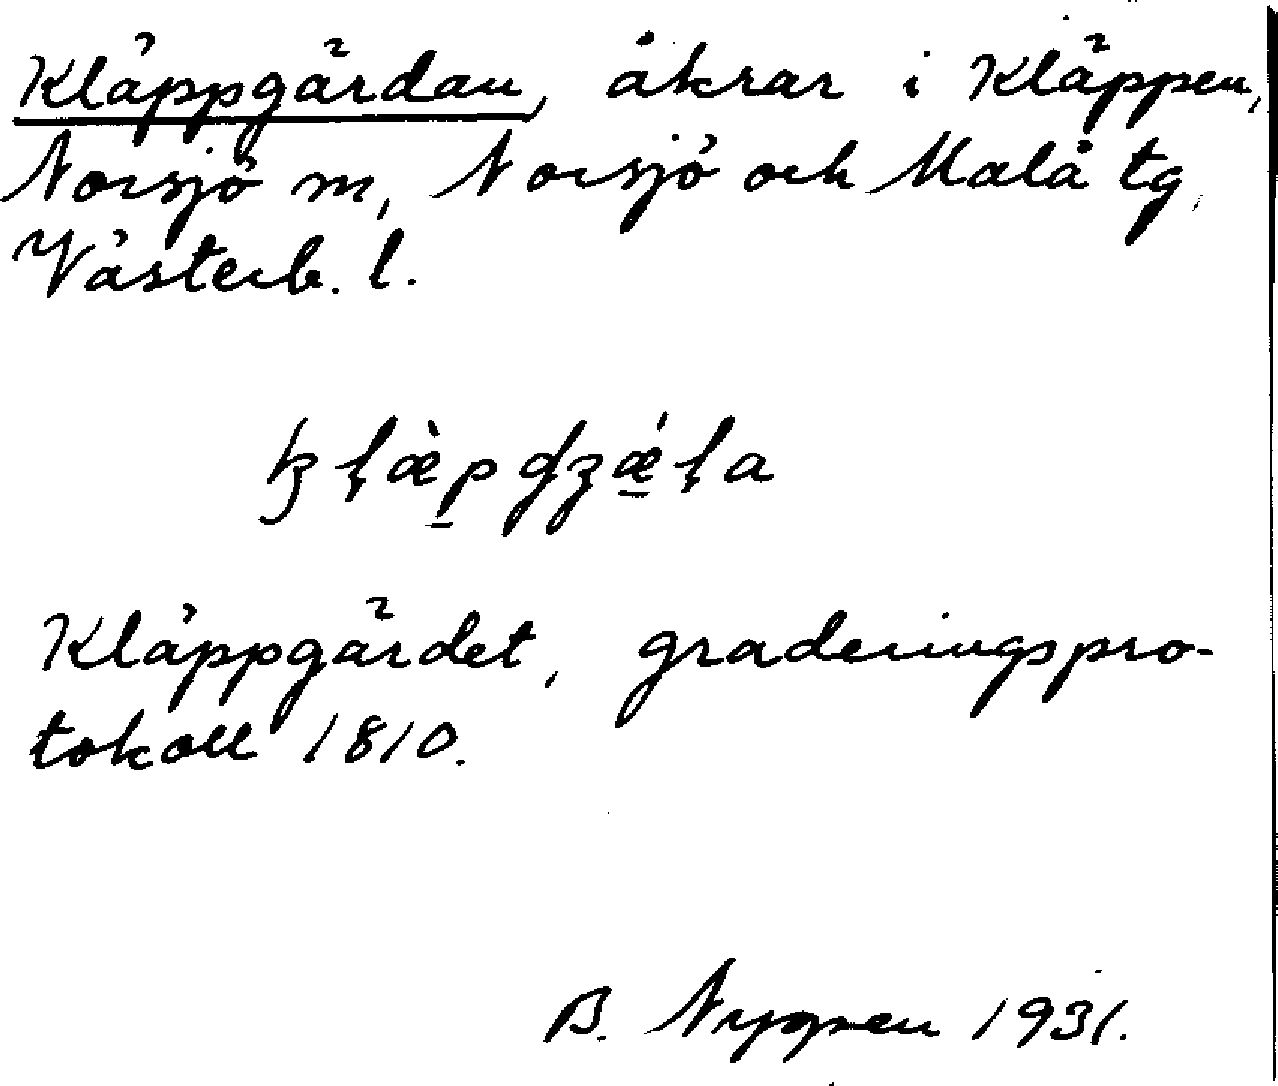 Kläppgärdan, åkrar i Kläppen,
Norsjö m, Norsjö och Malå tg,
Västerb. l.
Kläppgärdet, graderingspro-
tokoll 1810.
B. Nygren 1931.